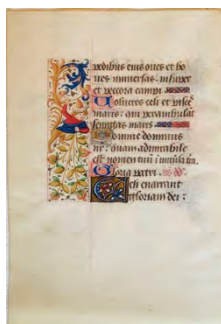 pedibus eius oues et bo
ues universas insuper
et pecora campi
Volucres celi et pisces
maris: qui perambulat
semitas maris
Domine dominus
nr: quam admirabile
est nomen tuū ī uniūsa tra.
Gloria patri.
Celi enarrant
gloriam dei: